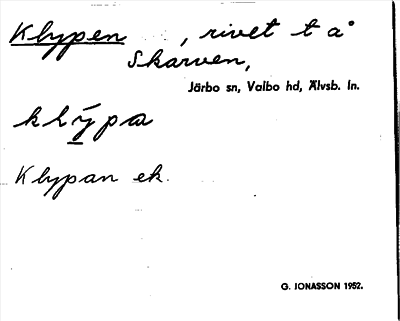 Klypen, rivet t å
Skarven,
Järbo sn, Valbo hd, Älvsb. ln.
klýpa
Klypan ek.
G. JONASSON 1952.